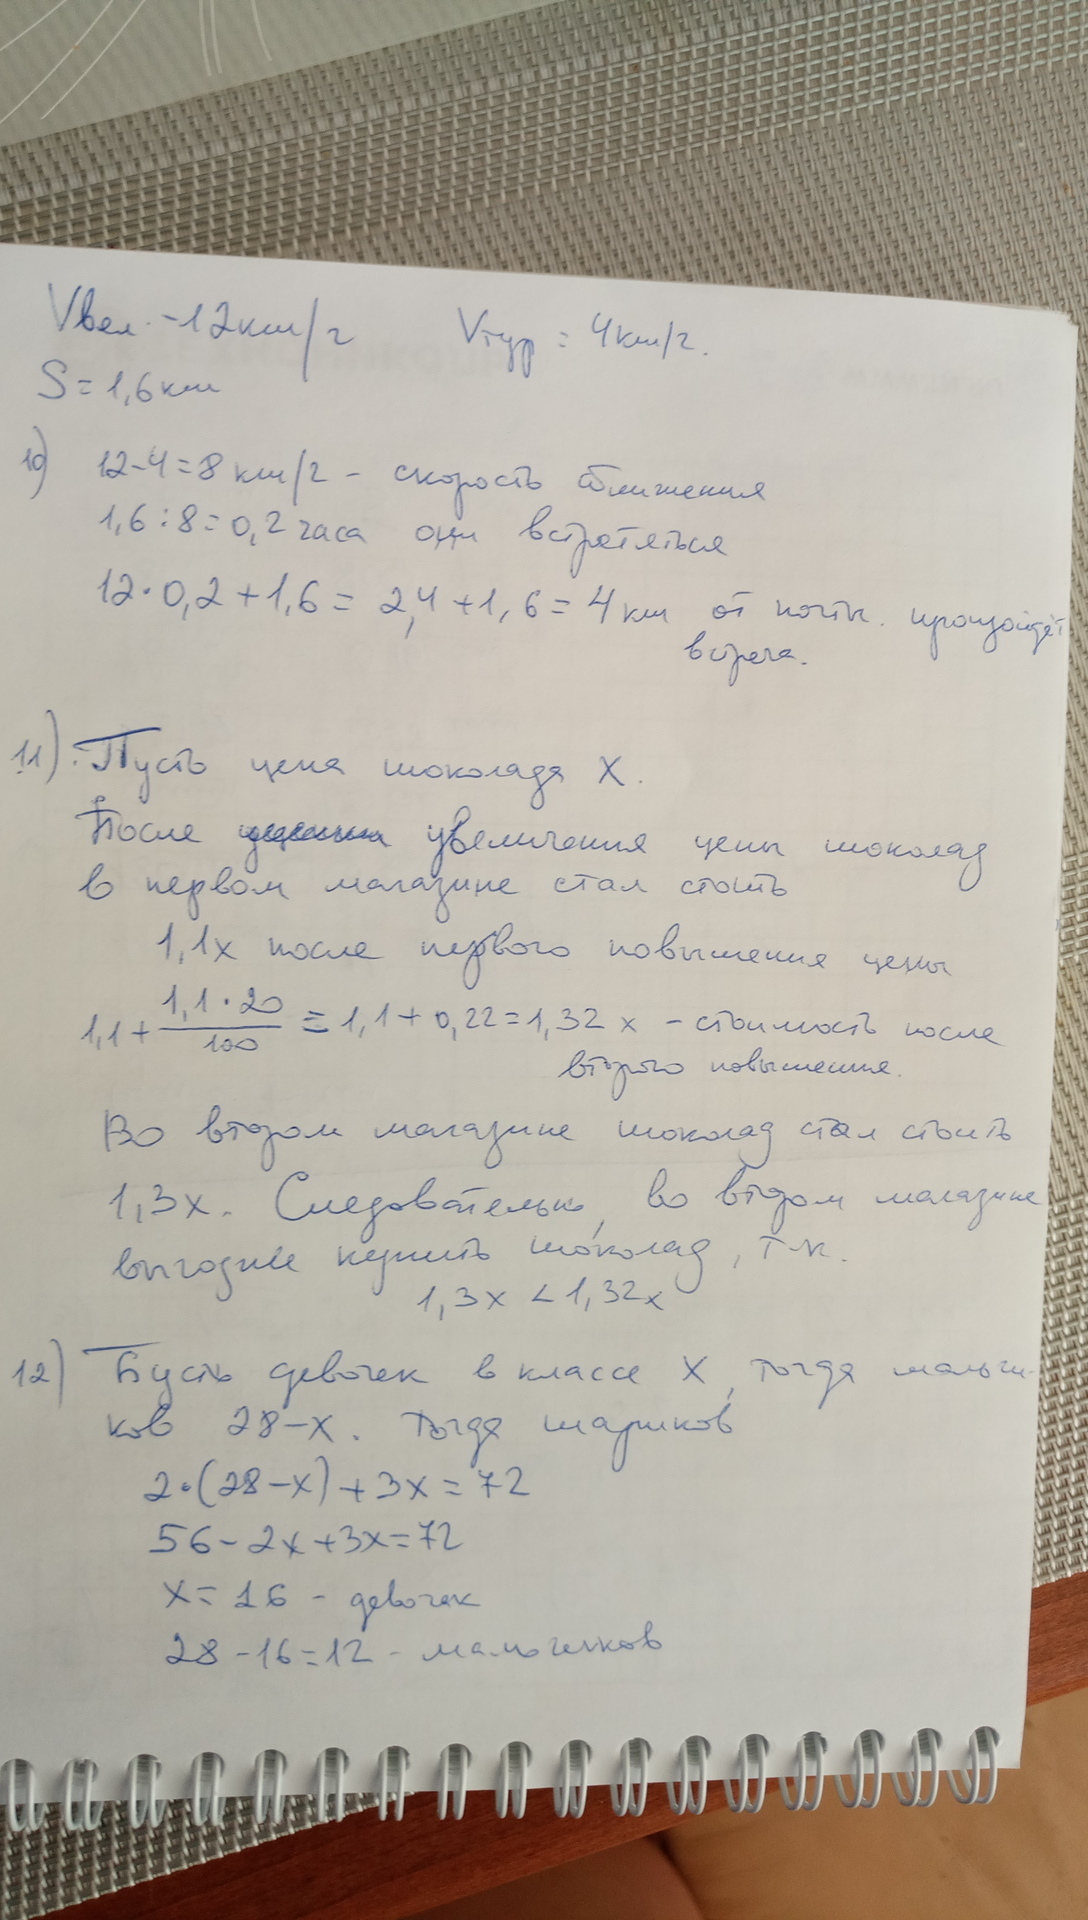 Vвел. - 12 км/ч Vтур = 4 км/ч.
S = 1,6 км
10) 12-4=8 км/ч - скорость сближения
1,6:8=0,2 часа они встретяться
12·0,2+1,6= 2,4+1,6=4 км от почты произойдёт
встреча.
11). Пусть цена шоколада X.
После увеличения цены шоколад
в первом магазине стал стоить
1,1x после первого повышения цены
1,1+ 1,1·20/100 = 1,1+0,22=1,32x - стоимость после
второго повышения.
Во втором магазине шоколад стал стоить
1,3x. Следовательно, во втором магазине
выгоднее купить шоколад, т.к.
1,3x < 1,32x
12) Пусть девочек в классе X, тогда мальчи-
ков 28-x. Тогда шариков
2·(28-x)+3x=72
56-2x+3x=72
x=16 - девочек
28-16=12 - мальчиков